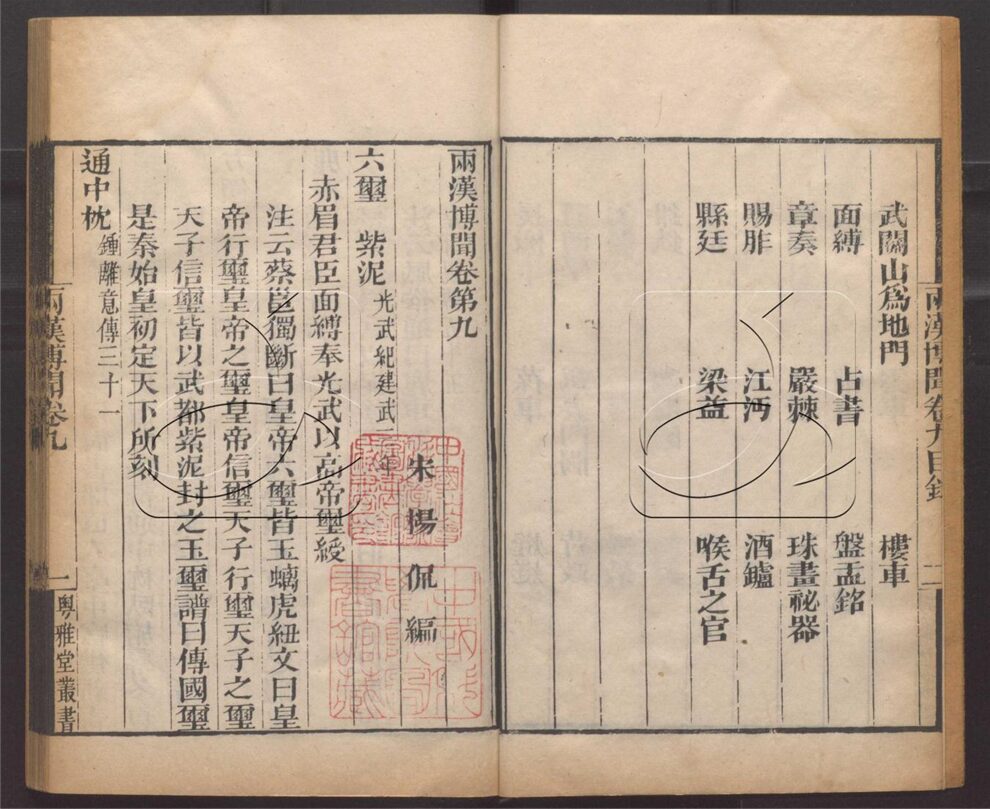 武關山爲地門 樓車
面縛 占書 盤盂銘
章奏 嚴棘 珠畫祕器
賜胙 江沔 酒鑪
縣廷 梁益 喉舌之官
兩漢博聞卷九目錄 二
兩漢博聞卷第九
宋 楊 侃 編
六璽 紫泥 光武紀建武三年
赤眉君臣面縛奉光武以高帝璽綬
注云蔡邕獨斷曰皇帝六璽皆玉螭虎紐文曰皇
帝行璽皇帝之璽皇帝信璽天子行璽天子之璽
天子信璽皆以武都紫泥封之玉璽譜曰傳國璽
是秦始皇初定天下所刻
通中枕 鍾離意傳三十一
兩漢博聞卷九 一 粵雅堂叢書